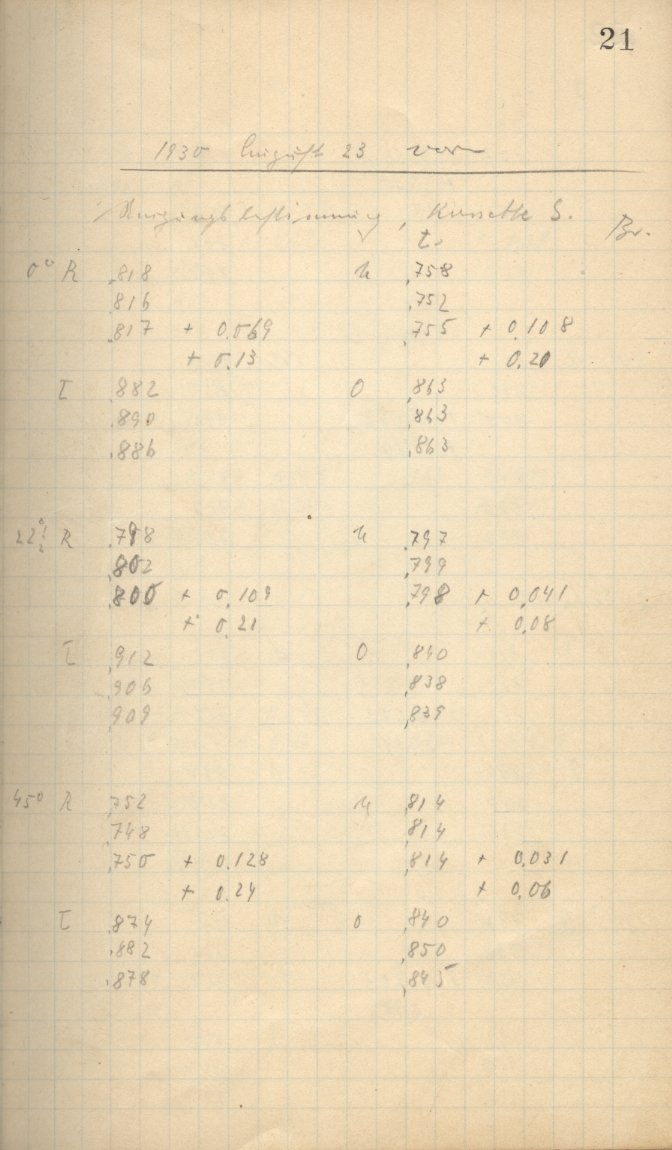 21
1930 August 23 vor
Neigungsbestimmung, Kassette S.
t. Br.
0° R .818 u .758
.816 .752
.817 + 0.069 .755 + 0.108
+ 0.13 + 0.20
L .882 O .863
.890 .863
.886 .863
22 1/2° R .798 u .797
.802 .799
.800 + 0.109 .798 + 0.041
+ 0.21 + 0.08
L .912 O .840
.906 .838
.909 .839
45° R .752 u .814
.748 .814
.750 + 0.128 .814 + 0.031
+ 0.24 + 0.06
L .874 O .840
.882 .850
.878 .845